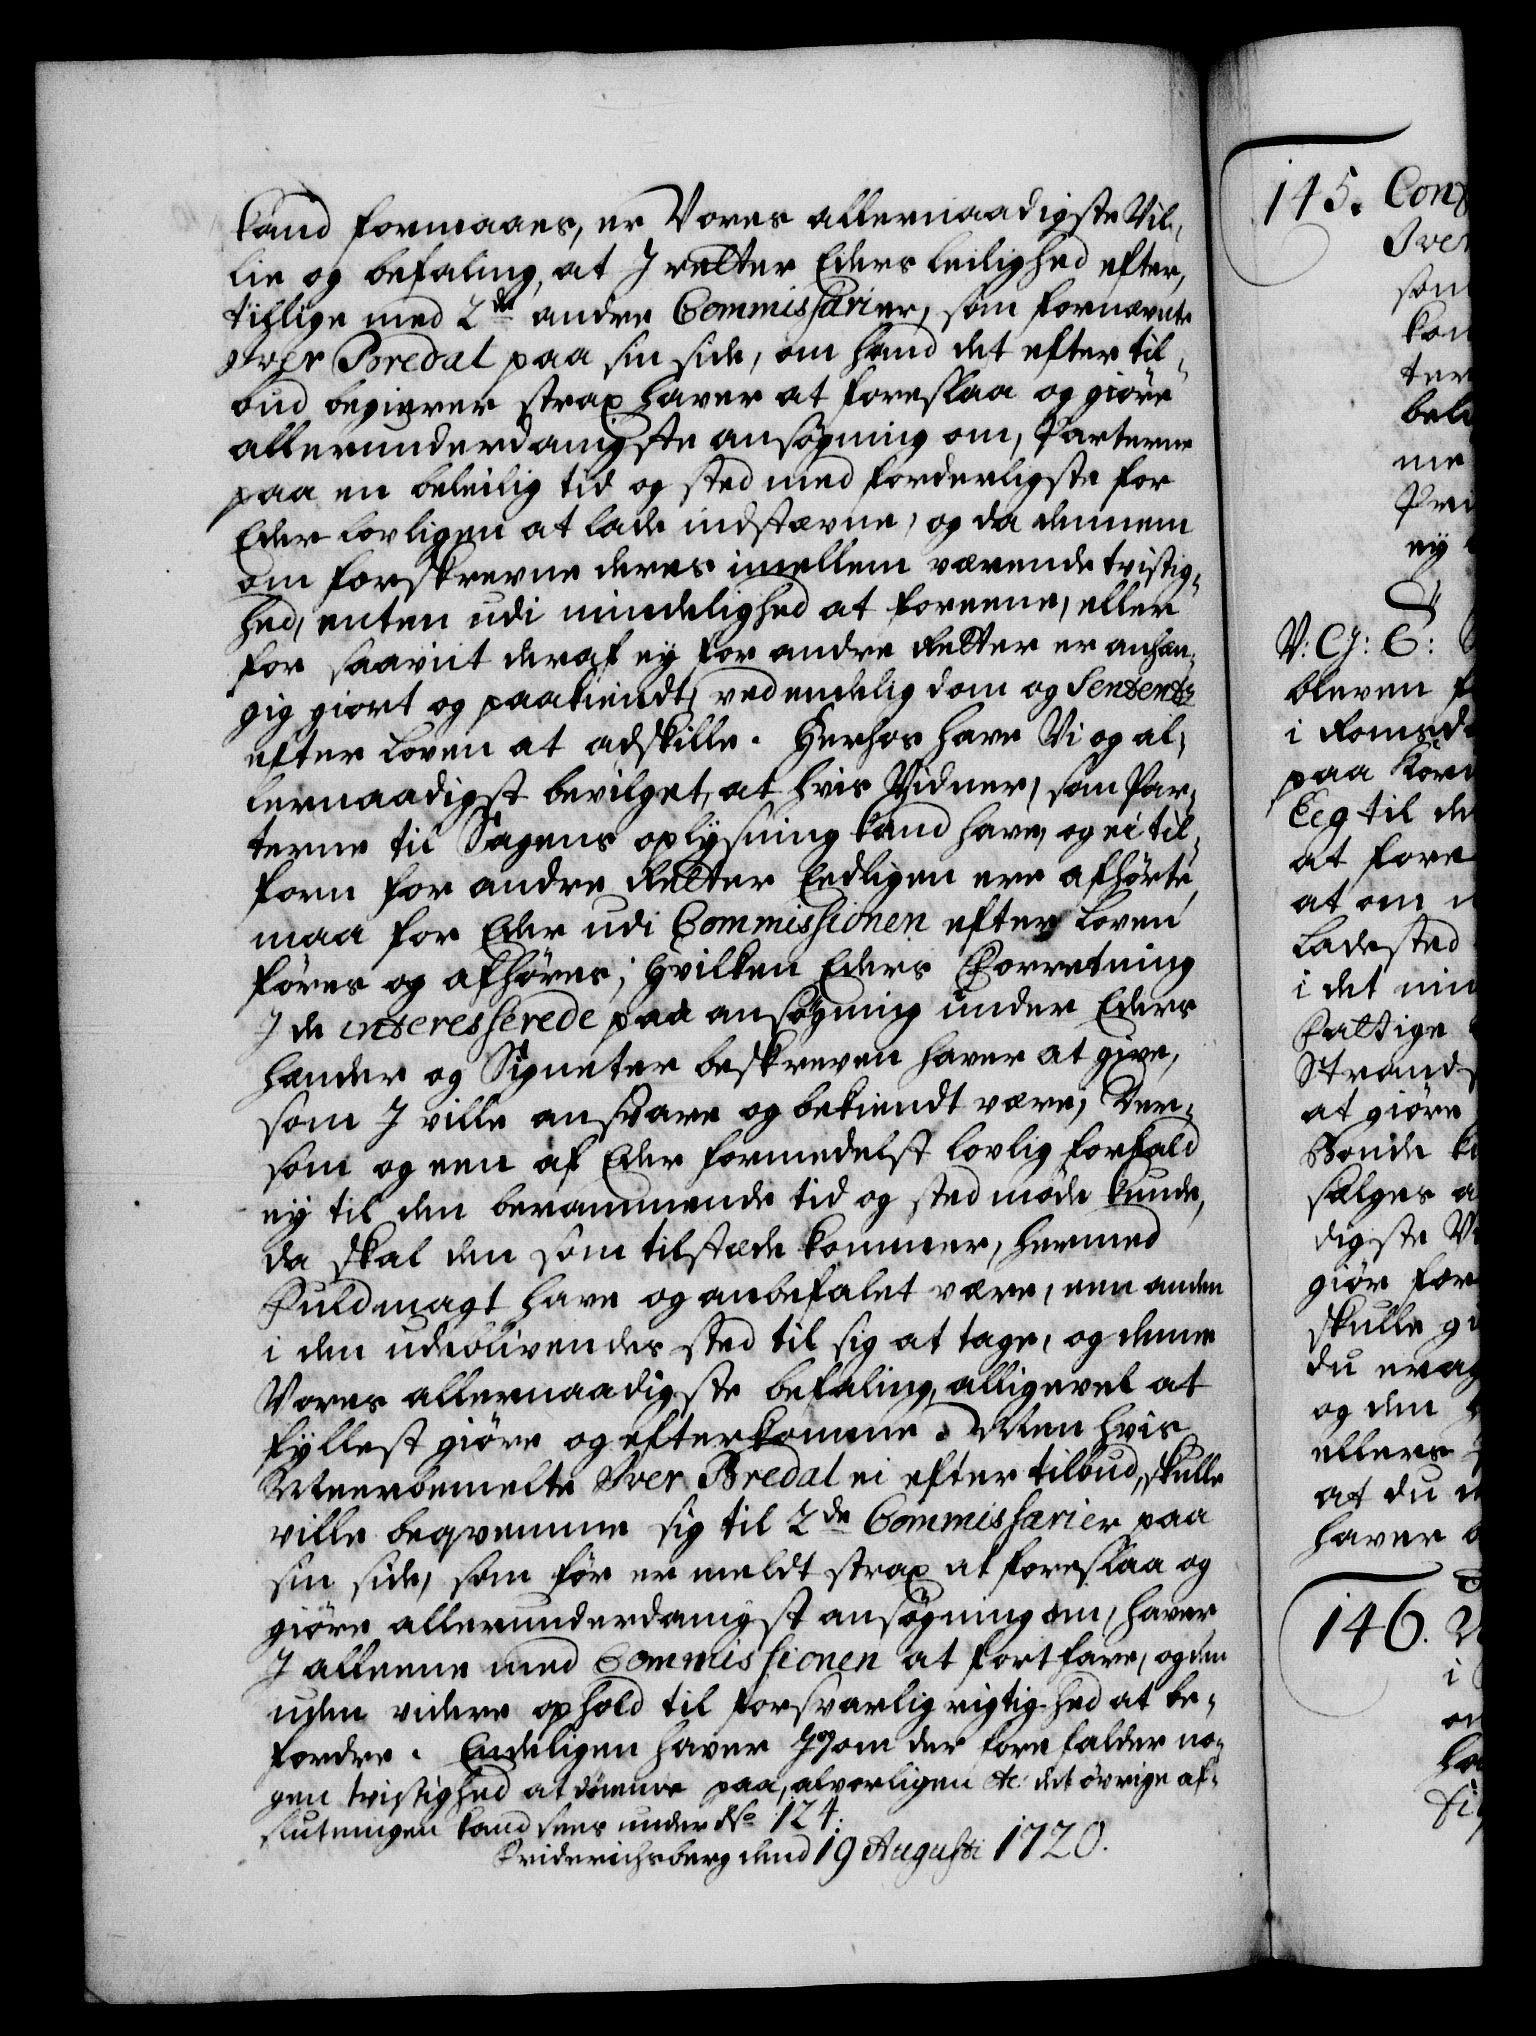 kand formaaes, er Vores allernaadigste Vil„
lie og befaling, at I retter Eders leilighed efter,
tillige med 2de andre Commissarier, som fornævnte
Iver Bredal paa sin side, om hand det efter til„
bud begierer strax haver at foreslaa og giøre
allerunderdanigste ansøgning om, Parterne
paa en beleilig tid og sted med forderligste for
Eder lovligen at lade indstævne, og da dennem
om forskrevne deres imellem værende tvistig„
hed, enten udi mindelighed at foreene, eller
for saavit deraf ey for andre Retter er anhæn„
gig giort og paakiendt, ved endelig dom og Sentents
efter Loven at adskille. Herhos have Vi og al„
lernaadigst bevilget, at hvis Vidner, som Par„
terne til Sagens oplysning kand have, og ei til„
forn for andre Retter Eedligen ere afhørte,
maa for Eder udi Commissionen efter Loven
føres og afhøres; hvilken Eders Forretning
I de interesserede paa ansøgning under Eders
hænder og Signeter beskreven haver at give,
som I ville ansvare og bekiendt være, Der„
som og een af Eder formedelst lovlig forfald
ey til den berammende tid og sted møde kunde,
da skal den som tilstæde kommer, hermed
Fuldmagt have og anbefalet være, een anden
i den udeblivendes sted til sig at tage, og denne
Vores allernaadigste befaling, alligevel at
fyllest giøre og efterkomme. Men hvis
Meerbemelte Iver Bredal ei efter tilbud, skulle
ville beqvemme sig til 2de Commissarier paa
sin side, som før er meldt strax at foreslaa og
giøre allerunderdanigst ansøgning om, haver
I alleene med Commissionen at fortfare, og den
uden videre ophold til forsvarlig rigtighed at be„
fordre. Endeligen haver I og om der forefalder no„
gen tvistighed at dømme paa, alvorligen etc: det øvrige af„
slutningen kand sees under No 124.
Friderichsberg dend 19 Augusti 1720.
145. Con
Iver
som
kon
ter
bele
me
Pri
ey
V: G: T:
bleven f
i Romsda
paa
Eeg til de
at fore
at om
Ladested
i det min
Fattige
Strands
at giøre
Bonde k
sælges a
digste Vi
giør for
skulle g
du erag
og den
ellers
at du
haver
146.
i
on